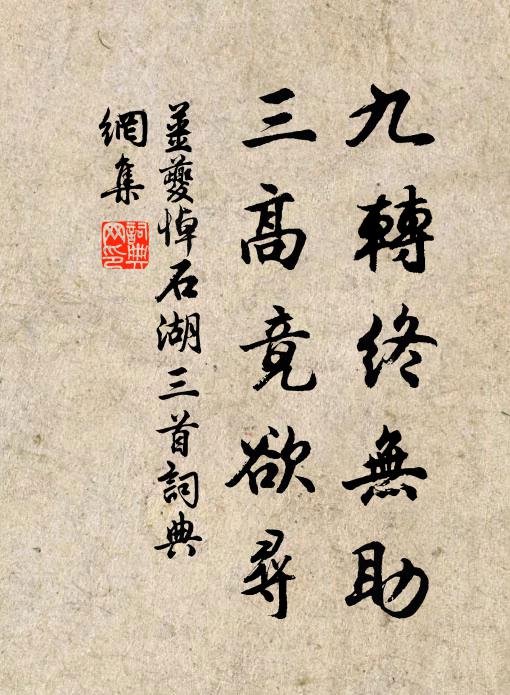 九轉終無助
三高竟欲尋
姜夔悼石湖三首詞典
網集
詞典網印